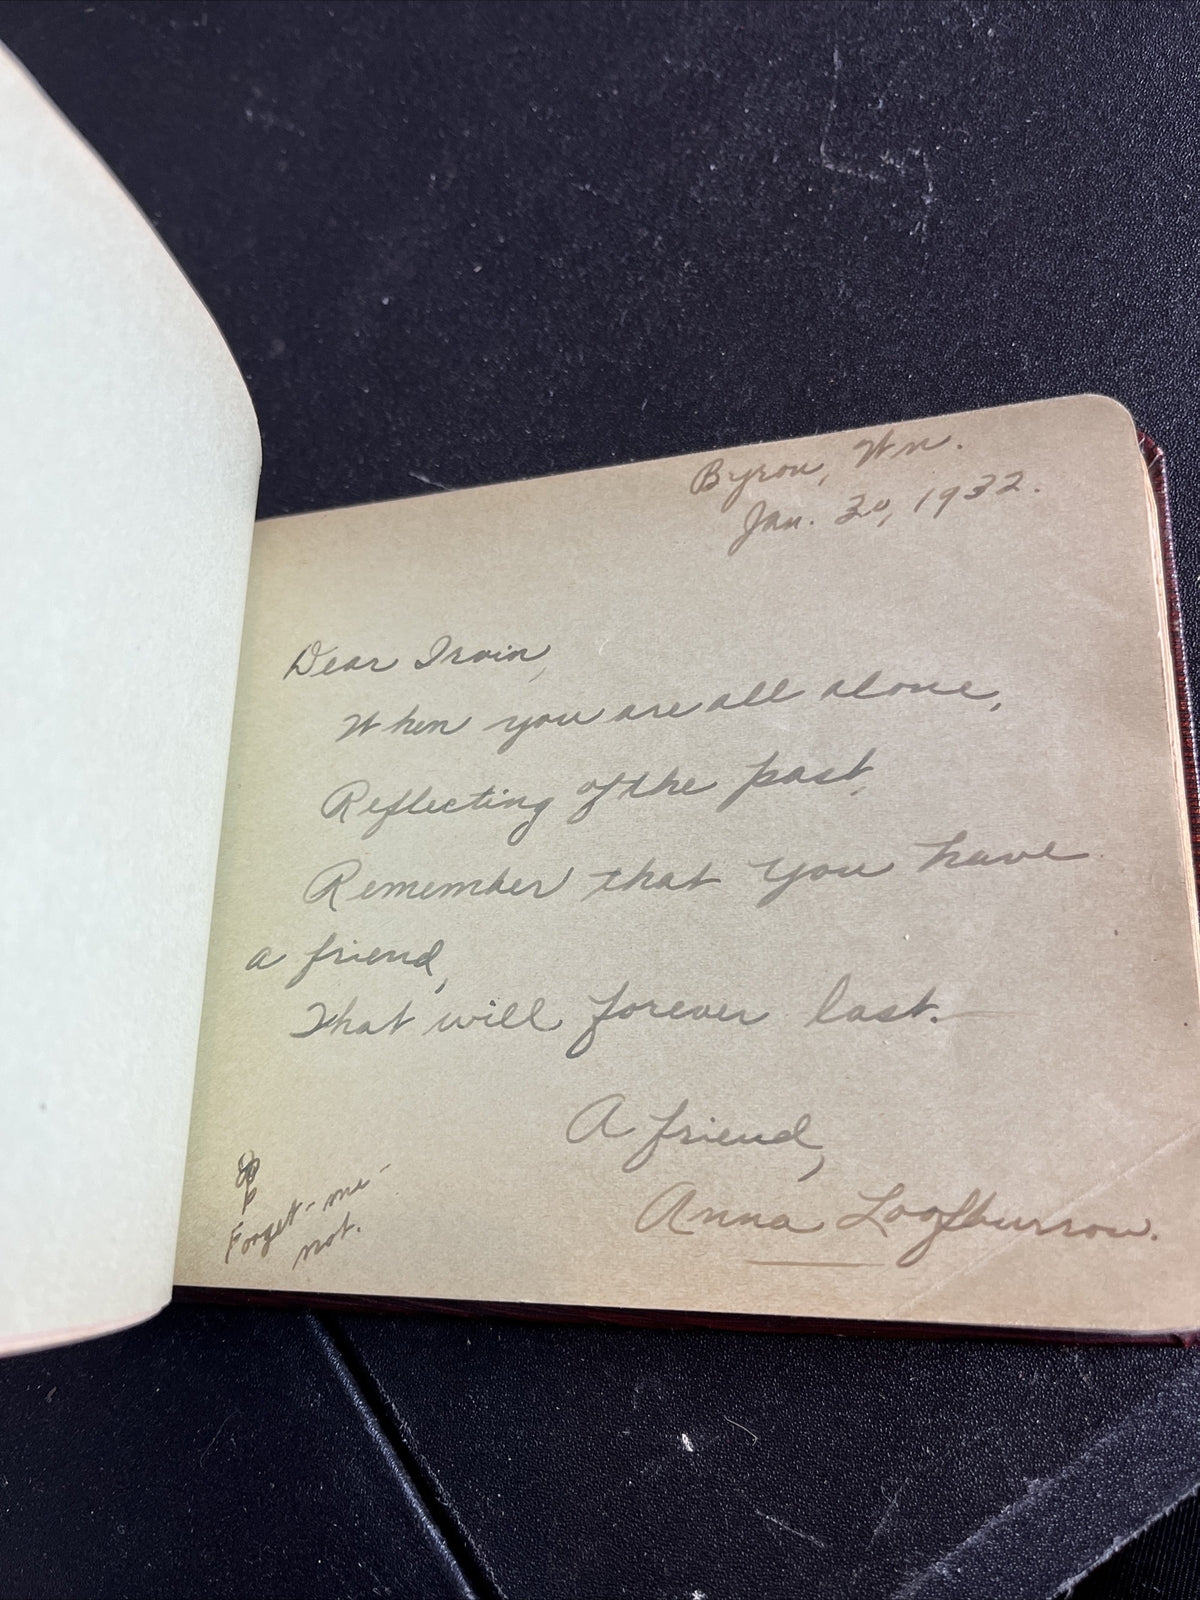 Byron, Wn.
Jan. 30, 1932.
Dear Irvin,
When you are all alone,
Reflecting of the past,
Remember that you have
a friend,
That will forever last.
A friend,
Anna Loofburrow.
Forget-me-
not.